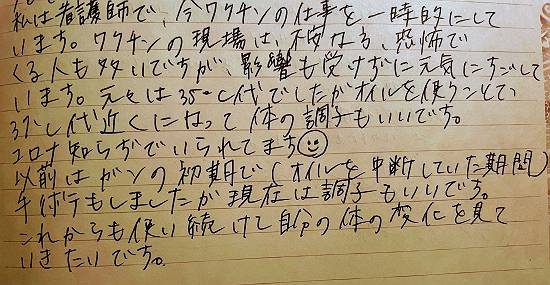 私は看護師で、今ワクチンの仕事を一時的にして
います。ワクチンの現場は、不安なる、恐怖で
くる人も多いですが、影響も受けずに元気にすごして
います。元々は35℃代でしたがオイルを使うことで、
37℃代近くになって体の調子もいいです。
コロナ知らずでいられてます
以前はガンの初期で(オイルを中断していた期間)
手術もしましたが現在は調子もいいです。
これからも使い続けて自分の体の変化を見て
いきたいです。